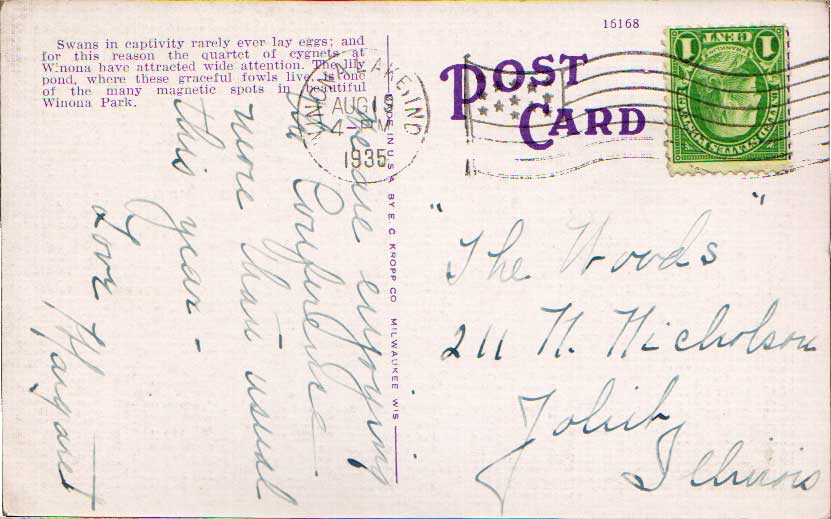 16168
Swans in captivity rarely ever lay eggs; and
for this reason the quartet of cygnets at
Winona have attracted wide attention. The lily
pond, where these graceful fowls live, is one
of the many magnetic spots in beautiful
Winona Park.
POST
CARD
WINONA LAKE, IND
AUG 1
4-PM
1935
1 CENT 1
MADE IN U.S.A. BY E. C. KROPP CO. MILWAUKEE WIS.
are enjoying
the Conference
more than usual
this year -
Love Margaret
"The Woods"
211 N. Nicholson
Joliet
Illinois